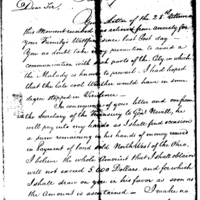 Dear Sir,
Your letter of the 28th Ultimo
this moment received has relieved my anxiety for
your Family's Welfare
You no doubt take every precaution to avoid a
communication with such parts of the City in which
the Malady is known to prevail. I had hoped
that the late cool Weather would have in some
degree stopped its Virulence.
In consequence of your letter and one from
the Secretary of the Treasury to Genl
will pay into my hands as I shall find occasion
a sum remaining in his hands of money raised
in payment of land sold North West of the Ohio,
I believe the whole Amount that I shall obtain
will not exceed 5,000 Dollars, and for which
I shall draw on you in his favor as soon as
the Amount is ascertained - I make no